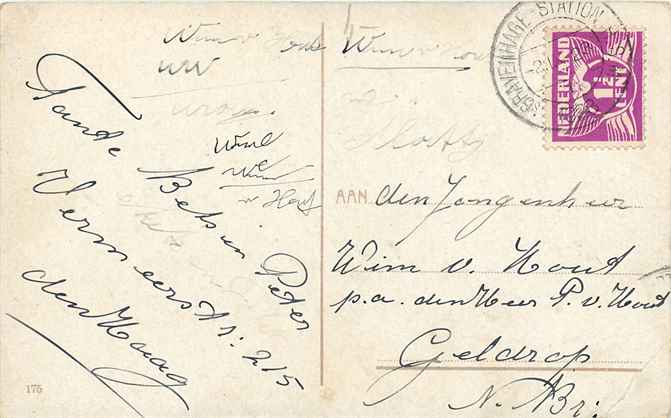 Wim v Hout
Wim v Hout
WW
Wim
We
Wim
v Hout
Tante Betsien Peter
Vermeerstr: 215
den Haag
175
'S GRAVENHAGE-STATION
NEDERLAND
1½
CENT
AAN den Jongenheer
Wim v. Hout
p.a. den Heer P. v. Hout
Geldrop
N. Br: